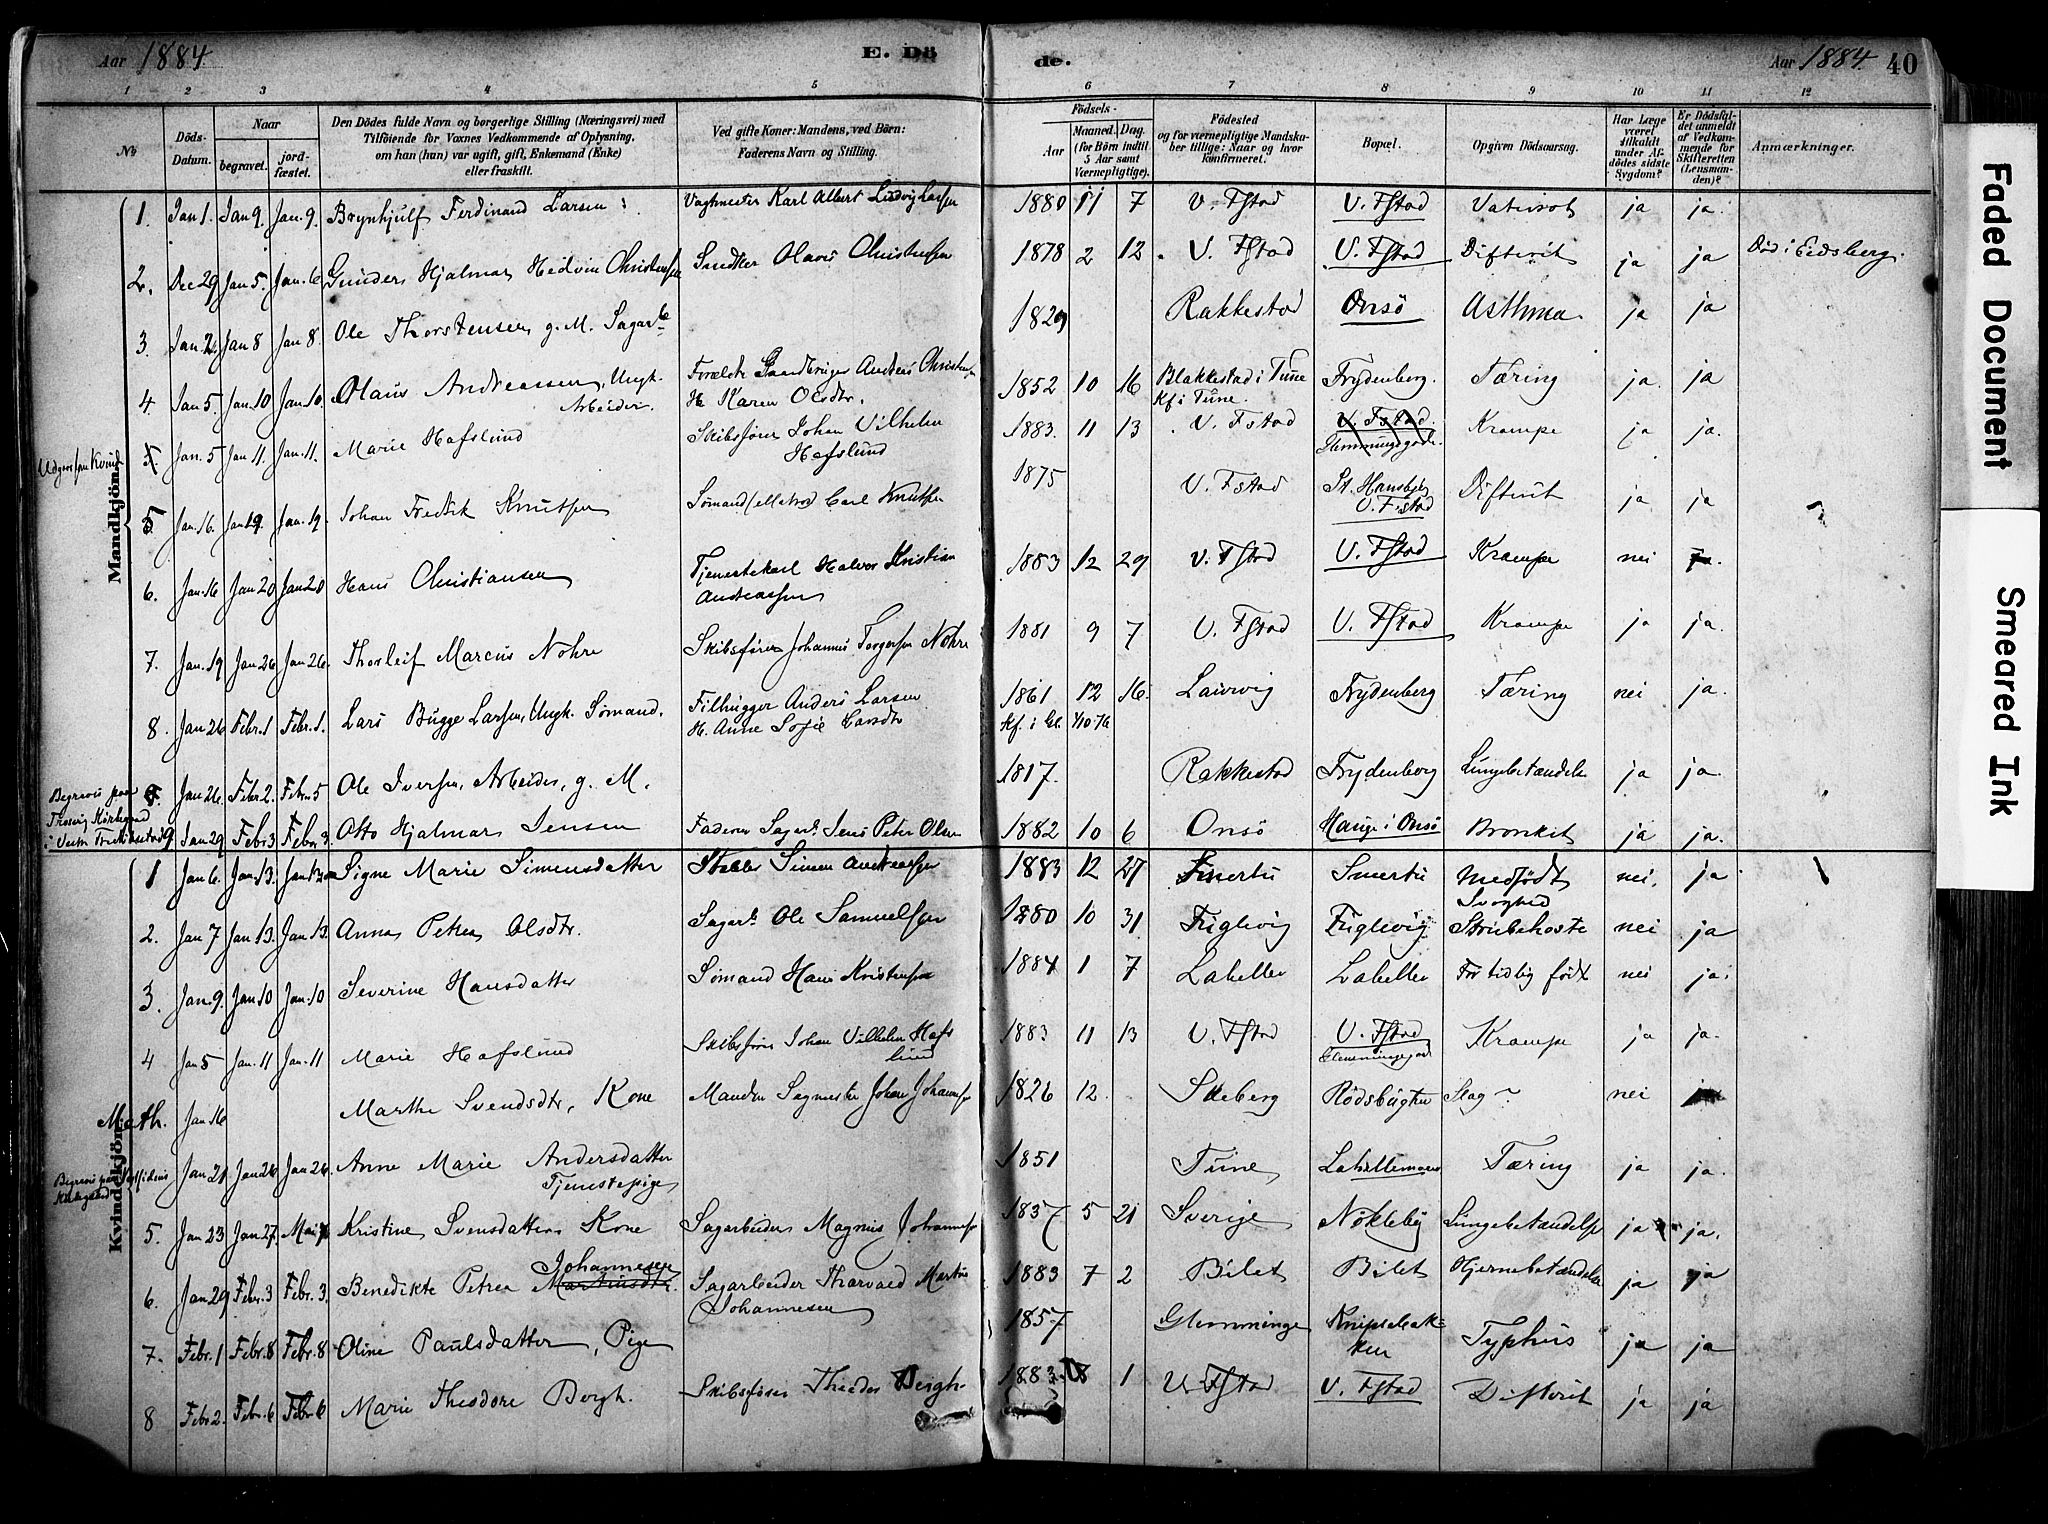 Aar 1884. E. Dö
de. Aar 1884. 40
1 2 3 4 5 6 7 8 9 10 11 12
№ Döds-Datum. Naar begravet. jord-fæstet. Den Dödes fulde Navn og borgerlige Stilling (Næringsvei) med Tilföiende for Voxnes Vedkommende af Oplysning, om han (hun) var ugift, gift, Enkemand (Enke) eller fraskilt. Ved gifte Koner: Mandens, ved Börn: Faderens Navn og Stilling. Födsels- Aar Maaned. Dag. (for Börn indtil 5 Aar samt Værnepligtige). Födested og for værnepligtige Mandskaber tillige: Naar og hvor konfirmeret. Bopæl. Opgiven Dödsaarsag. Har Læge været tilkaldt under Afdödes sidste Sygdom? Er Dödsfaldet anmeldt af Vedkommende for Skifteretten (Lensmanden)? Anmærkninger.
Mandkjön.
1. Jan 1. Jan 9. Jan. 9. Brynhjulf Ferdinand Larsen Vagtmester Karl Albert Ludvig Larsen 1880 11 7 V. Fstad V. Fstad ja ja.
2. Dec 29 Jan 5. Jan. 6 Gunders Hjalmar Hedvin Christensen Olaus Christensen 1878 2 12 V. Fstad V. Fstad Difterit ja ja Död i Eidsberg.
3. Jan 2. Jan 8 Jan 8. Ole Thorstensen g. M. Sagarb. 1829 Rakkestad Onsö Asthma ja ja
4. Jan 5. Jan. 10 Jan 10. Olaus Andreassen, Ungk. Arbeider. Forældre Gaardbruger Anders Christensen H. Karen Olsdtr. 1852 10 16 Blakkestad i Tune Kf i Tune. Frydenberg. Tæring ja. ja
5 Jan. 5 Jan 11. Jan. 11. Marie Hafslund Skibsfører Johan Vilhelm Hafslund 1883. 11 13 V. Fstad V. Fstad. Glemmingegade. Krampe ja ja.
5 Jan. 16. Jan 19. Jan. 19. Johan Fredrik Knutsen Sømand (Matros) Carl Knutsen 1875 V. Fstad St. Hansbjerg V. Fstad Difterit ja ja
6. Jan. 16 Jan 20 Jan 20 Hans Christiansen Tjenestekarl Halvor Kristian Andreassen 1883 12 29 V. Fstad V. Fstad Krampe nei
7. Jan. 19 Jan 26 Jan 26. Thorleif Marcus Nohre Skibsfører Johannes Torgersen Nohre 1881 9 7 V. Fstad V. Fstad Krampe ja ja.
8. Jan 26 Febr. 1 Febr. 1. Lars Bugge Larsen, Ungk. Sømand. Filhugger Anders Larsen H. Anne Sofie Larsdtr 1861 12 16. Kf. i Gl. 1/10.76 Laurvig Frydenberg Tæring nei ja.
Jan 26. Febr 2. Febr. 5 Ole Iversen, Arbeider, g. M. 1817. Rakkestad Frydenberg Lungebetændelse ja ja.
Begravet paa Trosvig Kirkegaard i Vestre Fredrikstad 9 Jan 29 Febr 3 Febr. 3. Otto Hjalmar Jensen Faderen Sagarb. Jens Peter Olsen 1882 10 6 Onsö Hauge i Onsö Bronkit ja ja.
Kvindekjön.
1 Jan 6. Jan. 13. Jan 13. Signe Marie Simensdatter Simen Andreassen 1883 12 27 Smertu Smertu Medfödt Svaghed nei. ja
2. Jan 7 Jan 13. Jan 13. Anna Petrea Olsdtr. Sagarb. Ole Samuelsen 1880 10 31 Fuglevig Fuglevig Strubehoste nei ja
3. Jan. 9. Jan 10 Jan 10 Severine Hansdatter Sømand Hans Kristensen 1884 1 7 Lahelle Lahelle For tidlig födt nei ja.
4 Jan 5 Jan. 11 Jan 11 Marie Hafslund Skibsfører Johan Vilhelm Hafslund 1883 11 13 V. Fstad V. Fstad Glemmingegade Krampe ja ja.
Jan 16 Marthe Svendsdtr, Kone Manden Sagmester Johan Johannesen 1826 12. Skeberg Rödsbugten Slag nei
Begravet paa Kirkegaard Jan 21 Jan 26 Jan 26. Anne Marie Andersdatter Tjenestepige 1851 Tune Lahellemoen Tæring ja ja.
5. Jan 23 Jan 27. Mai 7 Kristine Svensdatter Kone Sagarbeider Magnus Johannesen 1837 5 21 Sverige Nökleby Lungebetændelse ja ja.
6. Jan 29 Febr. 3 Febr. 3. Benedikte Petrea Martinsdtr. Johannesen Sagarbeider Thorvald Martin Johannesen 1883 7 2 Bilet Bilet Hjernebetændelse ja ja
7. Febr. 1 Febr. 8 Febr. 8 Oline Paulsdatter, Pige 1857 Glemminge Knipsebakken Typhus ja ja
8 Febr 2. Febr. 6 Febr 6 Marie Theodore Bergh. Skibsfører Theodor Bergh 1883. 1 V. Fstad V. Fstad Difterit ja ja
Faded Document
Smeared Ink